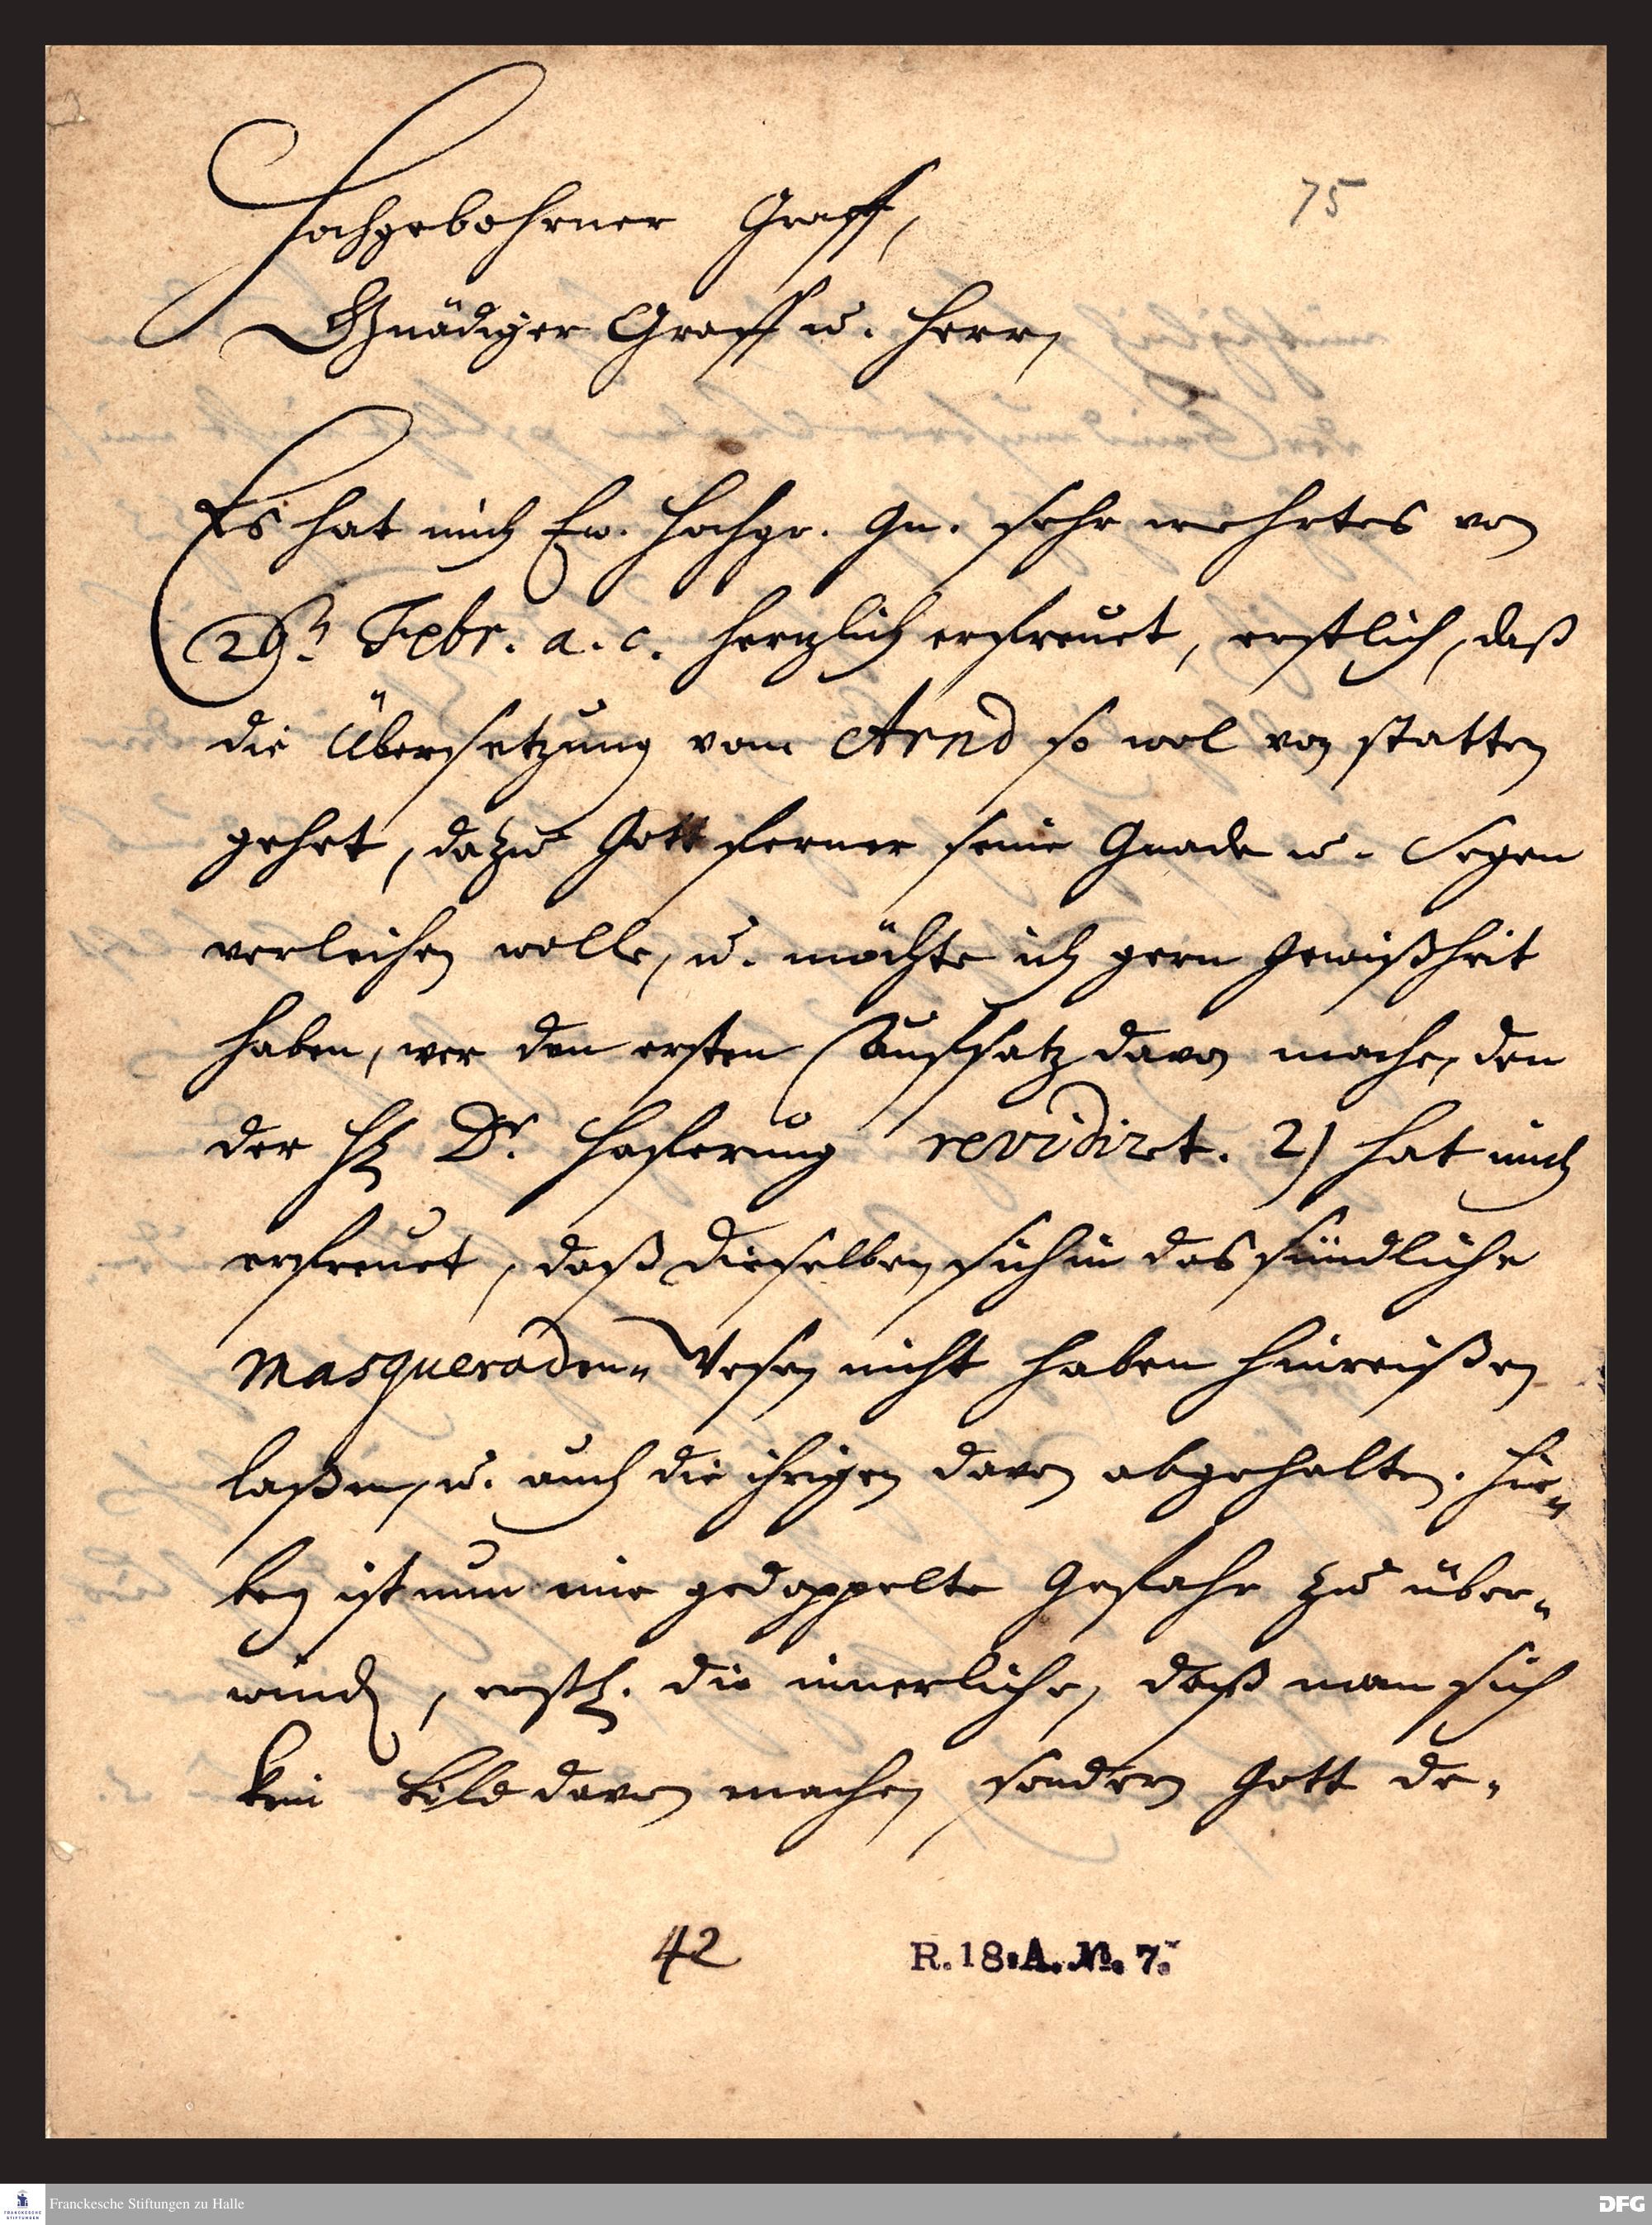 75
Hochgebohrner Graff,
Gnädiger Graff u. Herr,
Es hat mich Ew. Hochgr. Gn. sehr wehrtes von
29. Febr. a. c. hertzlich erfreuet, erstlich, daß
die Übersetzung vom Arnd so wol von statten
gehet, dazu Gott ferner seine Gnade u. Segen
verleihen wolle, u. möchte ich gern Gewißheit
haben, wer den ersten Auffsatz davon mache, den
der H. Dr. Haferung revidiret. 2) hat mich
erfreuet, daß dieselben sich in das sündliche
Masqueraden- Wesen nicht haben hinreißen
laßen, u. auch die ihrigen davon abgehalten. Hie-
bey ist nun eine gedoppelte Gefahr zu über-
winden, erstl. die innerliche, daß man sich
kein Bild davon machen, sondern Gott de-
42
R. 18. A. No. 7.
Franckesche Stiftungen zu Halle
FRANCKESCHE
STIFTUNGEN
DFG